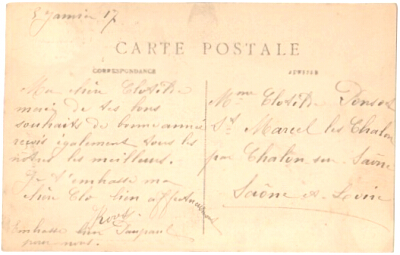 5 Janvier 17
CARTE POSTALE
CORRESPONDANCE
ADRESSE
Ma chère Clotilde
merci de tes bons
souhaits de bonne année
reçois également tous les
nôtres les meilleurs.
Je t'embrasse ma
chère Clo bien affectueusement
Embrasse bien
pour nous.
Mme Clotilde
St Marcel les Chalon
par Chalon sur Saône
Saône et Loire